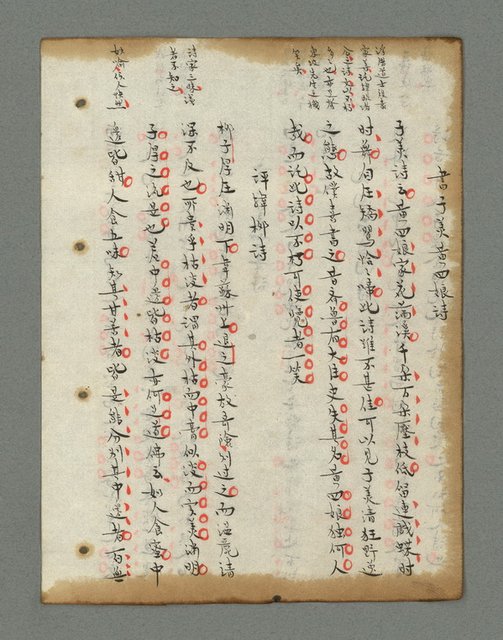 書子美黃四娘詩
子美詩云黃四娘家花滿溪千朵万朵壓枝低留連戲蝶時
時舞自在嬌鶯恰恰啼此詩雖不甚佳可以見子美清狂野逸
之態故僕喜書之昔齊魯有大臣史失其名黃四娘獨何人
哉而託此詩以不朽可使覽者一笑
評韓柳詩
柳子厚在淵明下韋蘇州上退之豪放奇險則過之而溫麗靖
深不及也所貴乎枯淡者謂其外枯而中膏似淡而實美淵明
子厚之流是也若中邊皆枯淡亦何足道佛云如人食蜜中
邊皆甜人食五味知其甘苦者皆是能分別其中邊者百無
詩家三昧淺
者不知